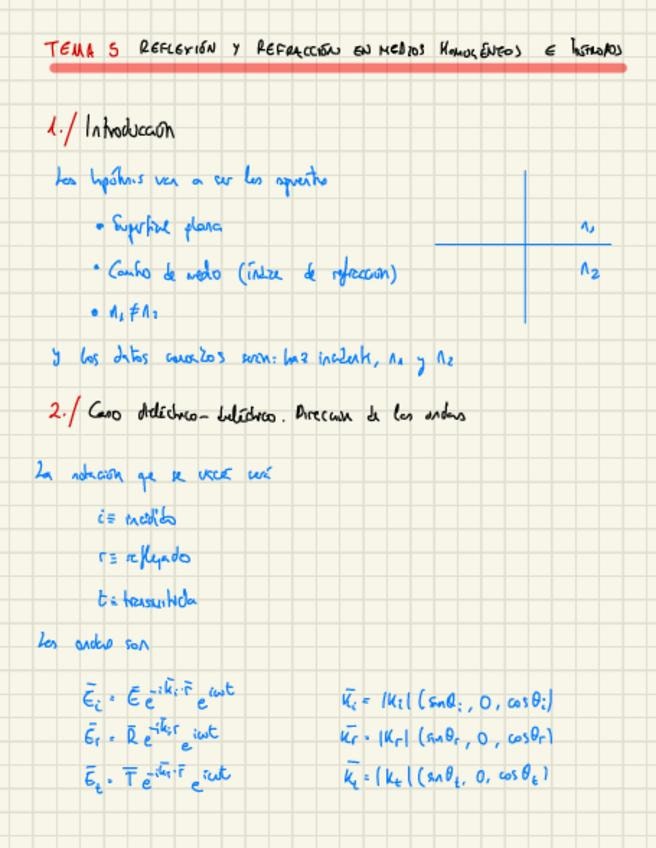 TEMA 5 REFLEXIÓN Y REFRACCIÓN EN MEDIOS HOMOGÉNEOS E ISÓTROPOS
1./ Introducción
Las hipótesis van a ser las siguientes
• Superficie plana
n₁
• Cambio de medio (índice de refracción)
n₂
• n₁ ≠ n₂
y los datos conocidos serán: luz incidente, n₁ y n₂
2./ Caso dieléctrico-dieléctrico. Dirección de las ondas
La notación que se usará será
i ≡ incidido
r ≡ reflejado
t ≡ transmitida
Las ondas son
Ēᵢ = Ē e^{-i k̄ᵢ·r̄} e^{iωt}
k̄ᵢ = |kᵢ| (sinθᵢ, 0, cosθᵢ)
Ēᵣ = R̄ e^{-i k̄ᵣ·r} e^{iωt}
k̄ᵣ = |kᵣ| (sinθᵣ, 0, cosθᵣ)
Ēₜ = T̄ e^{-i k̄ₜ·r̄} e^{iωt}
k̄ₜ = |kₜ| (sinθₜ, 0, cosθₜ)